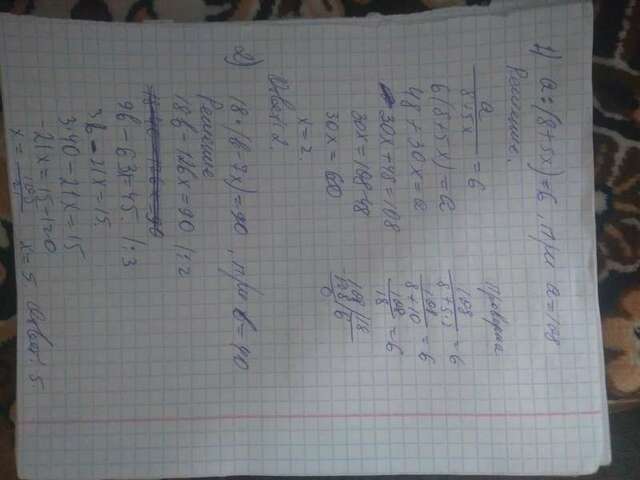 1) a:(8+5x)=6, при a=108
Решение.
a/(8+5x) = 6
6(8+5x)=a
48+30x=a
30x+48=108
30x=108-48
30x=60
x=2
Ответ: 2.
Проверка
108/(8+5·2) = 6
108/(8+10) = 6
108/18 = 6
108 | 18
108 | 6
0
2) 18·(b-7x)=90, при b=40
Решение
18b-126x=90 /:2
9b-63x=45 /:3
3b-21x=15.
3·40-21x=15
-21x=15-120
x=5 Ответ: 5.